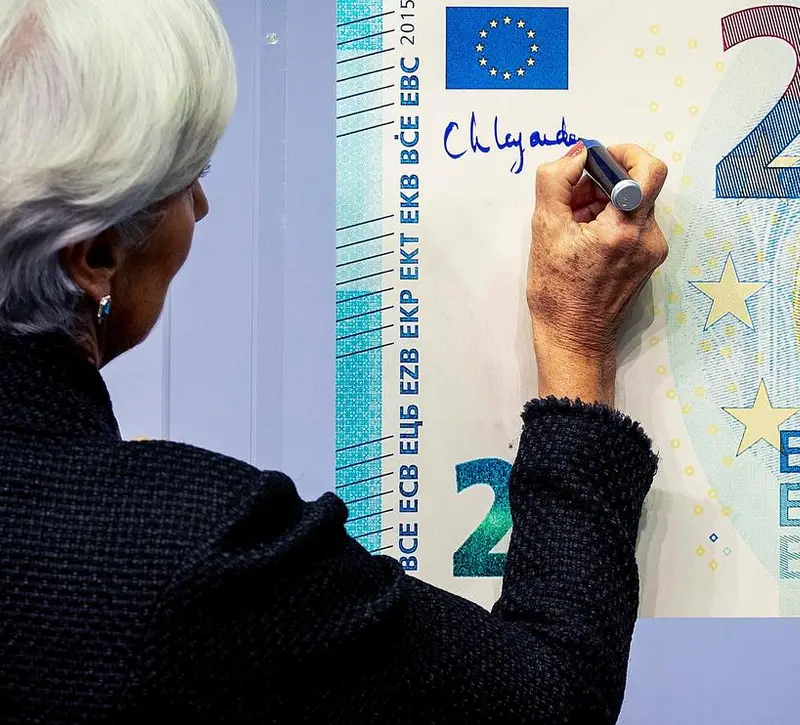 Ch Lagarde
BCE ECB ЕЦБ EZB EKP EKT EKB BĊE EBC 2015
2
2
E
E
E